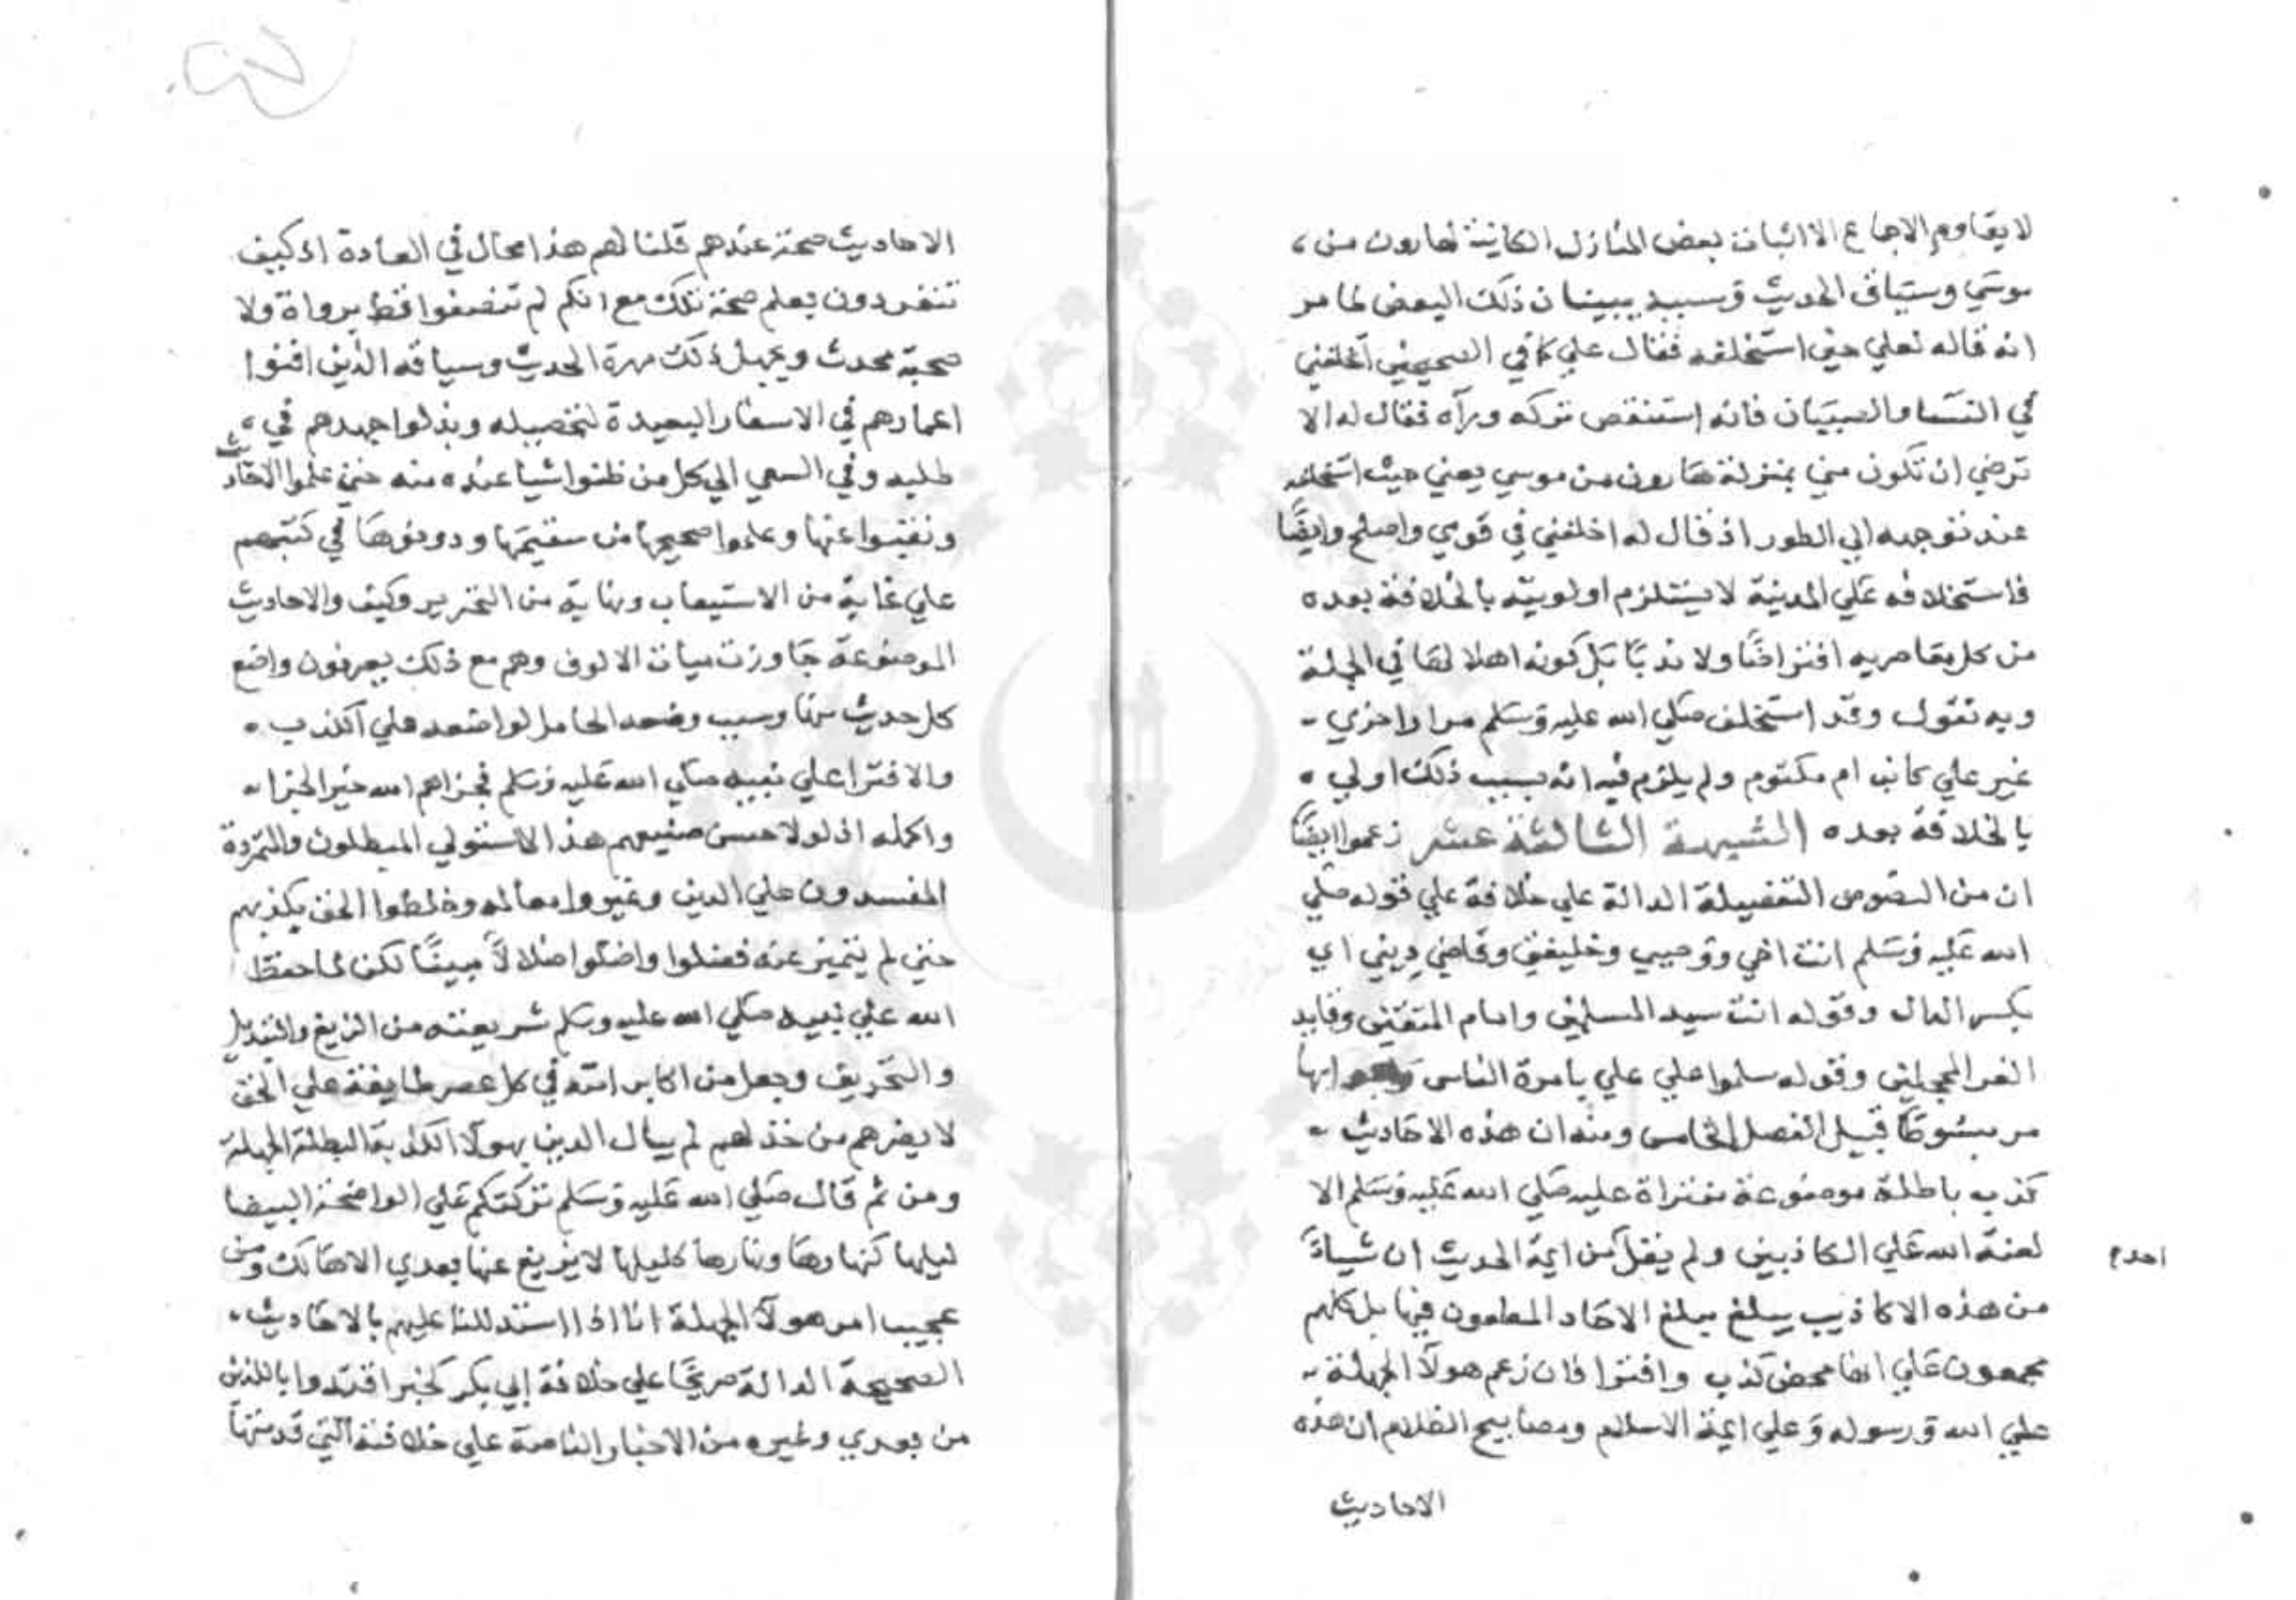 لا يقاوم الاجماع الا اثبات بعض المنازل الكاينة لهارون من
موسي وسياق الحديث وسببه يبينان ذلك البعض لما مر
انه قاله لعلي حين استخلفه فقال علي كما في الصحيحين اتخلفني
في النسا والصبيان فانه استنقص تركه ورآه فقال له الا
ترضي ان تكون مني بمنزلة هارون من موسي يعني حيث استخلفه
عند توجهه الي الطور اذ قال له اخلفني في قومي واصلح وايضًا
فاستخلافه علي المدينة لا يستلزم اولويته بالخلافة بعده
من كل معاصريه افتراضًا ولا ندبًا بل كونه اهلا لها في الجملة
وبه نقول وقد استخلف صلي الله عليه وسلم مرارا اخري
غير علي كابن ام مكتوم ولم يلزم فيه انه بسبب ذلك اولي
بالخلافة بعده الشبهة الثالثة عشر زعموا ايضًا
ان من النصوص التفصيلة الدالة علي خلافة علي قوله صلي
الله عليه وسلم انت اخي ووصيي وخليفتي وقاضي ديني اي
بكسر الدال وقوله انت سيد المسلمين وامام المتقين وقايد
الغر المحجلين وقوله سلموا علي علي بامرة الناس وجوابها
مر مبسوطًا قبيل الفصل الخامس ومنه ان هذه الاحاديث
كذب باطلة موضوعة مفتراة عليه صلي الله عليه وسلم الا
لعنة الله علي الكاذبين ولم ينقل من ايمة الحديث ان شياءً
احد
من هذه الاكاذيب يبلغ مبلغ الاحاد المطعون فيها بل كلهم
مجمعون علي انها محض كذب وافترا فان زعم هولآ الجهلة
علي الله ورسوله وعلي ايمة الاسلام ومصابيح الظلام ان هذه
الاحاديث
الاحاديث صحت عندهم قلنا لهم هذا محال في العادة اذ كيف
تنفردون بعلم صحة تلك مع انكم لم تتصفوا قط برواة ولا
صحبة محدث ويجهل ذلك مهرة الحديث وسباقه الذين افنوا
اعمارهم في الاسفار البعيدة لتحصيله وبذلوا جهدهم في
طلبه وفي السعي الي كل من ظنوا شيا عنده منه حتي علموا الاحاديث
ونقبوا عنها وعلموا صحيحها من سقيمها ودونوها في كتبهم
علي غاية من الاستيعاب ونهاية من التحرير وكيف والاحاديث
الموضوعة جاوزت ميات الالوف وهم مع ذلك يعرفون واضع
كل حديث منها وسبب وضعه الحامل لواضعه علي الكذب
والافترا علي نبيه صلي الله عليه وسلم فجزاهم الله خير الجزاء
واكمله اذ لولا حسن صنيعهم هذا لاستولي المبطلون والمتمردة
المفسدون علي الدين وغيروا معالمه وخلطوا الحق بكذبهم
حتي لم يتميز عنه فضلوا واضلوا ضلالاً مبينًا لكن لما حفظ
الله علي نبيه صلي الله عليه وسلم شريعته من الزيغ والتبديل
والتحريف وجعل من اكابر امته في كل عصر طايفة علي الحق
لا يضرهم من خذلهم لم يبال الدين بهولآ الكذبة البطلة الجهلة
ومن ثم قال صلي الله عليه وسلم تركتكم علي الواضحة البيضا
ليلها كنهارها ونهارها كليلها لا يزيغ عنها بعدي الا هالك ومن
عجيب امر هولآ الجهلة انا اذا استدللنا عليهم بالاحاديث
الصحيحة الدالة صريحًا علي خلافة ابي بكر كخبر اقتدوا باللذين
من بعدي وغيره من الاخبار الناصة علي خلافته التي قدمتها